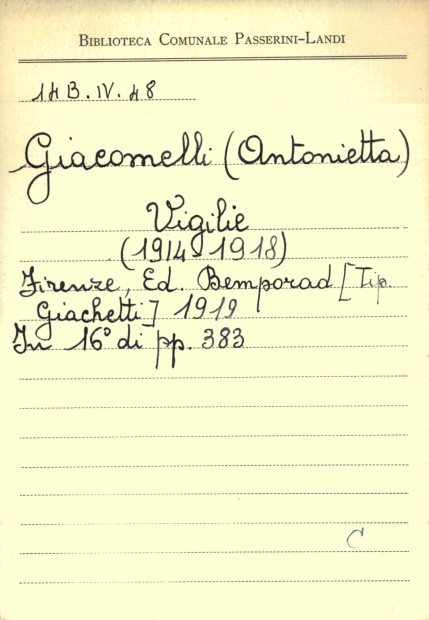 BIBLIOTECA COMUNALE PASSERINI-LANDI
14 B. IV. 48
Giacomelli (Antonietta)
Vigilie
(1914-1918)
Firenze, Ed. Bemporad [Tip.
Giachetti] 1919
In 16° di pp. 383
C